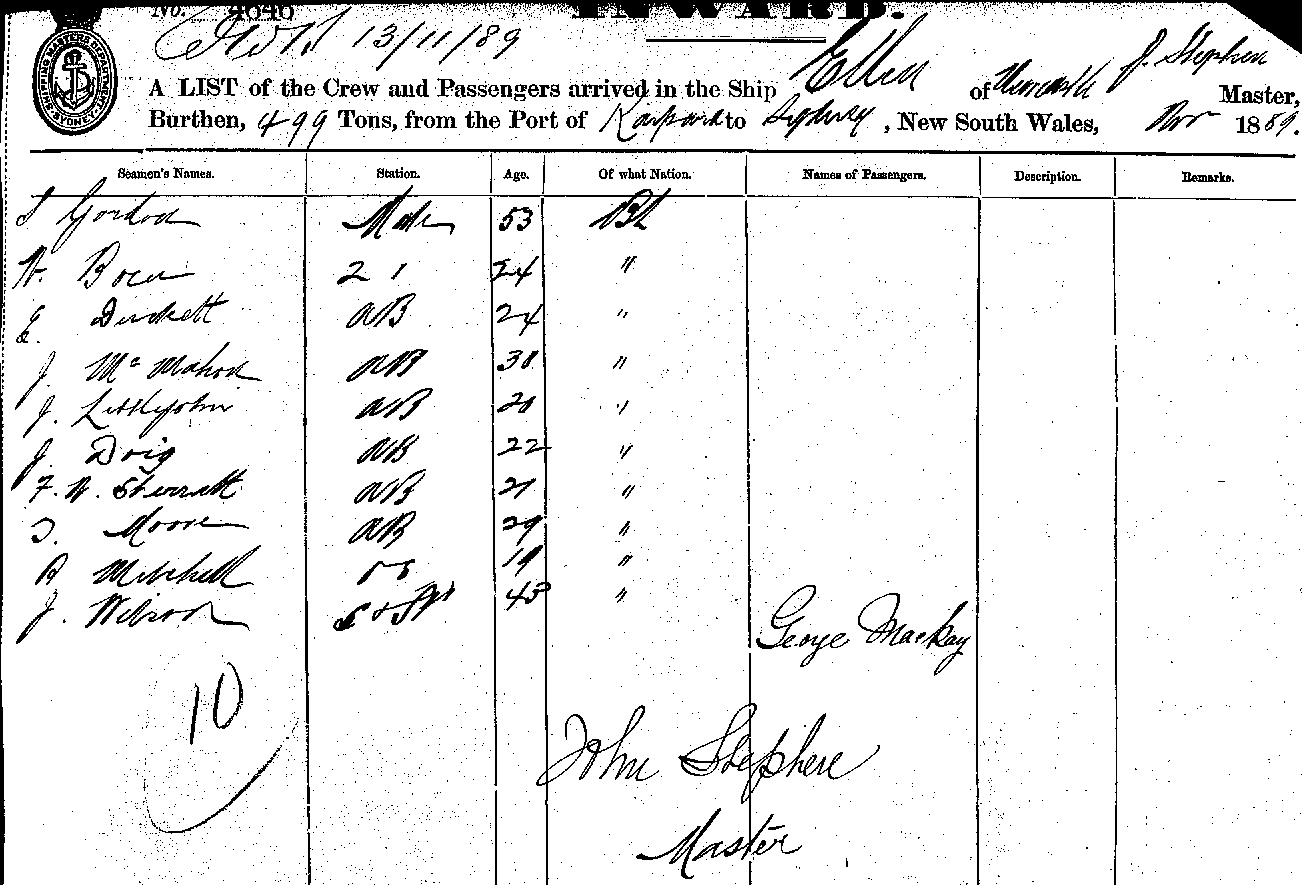 No. 4646 INWARD.
13/11/89
SHIPPING MASTERS DEPARTMENT SYDNEY
A LIST of the Crew and Passengers arrived in the Ship Ellen of Newcastle J. Stephen Master,
Burthen, 499 Tons, from the Port of to Sydney, New South Wales, Nov 1889.
Seamen's Names. Station. Age. Of what Nation. Names of Passengers. Description. Remarks.
Gordon Mate 53
W. 2 24 "
E. Duckett AB 24 "
J. McMahon AB 30 "
J. Littlejohn AB 20 "
J. Doig AB 22 "
F. W. Sterratt AB 21 "
Moore AB 29 "
Mitchell OS 19 "
J. Wilson 45 "
George Mackay
10
John Stephen
Master